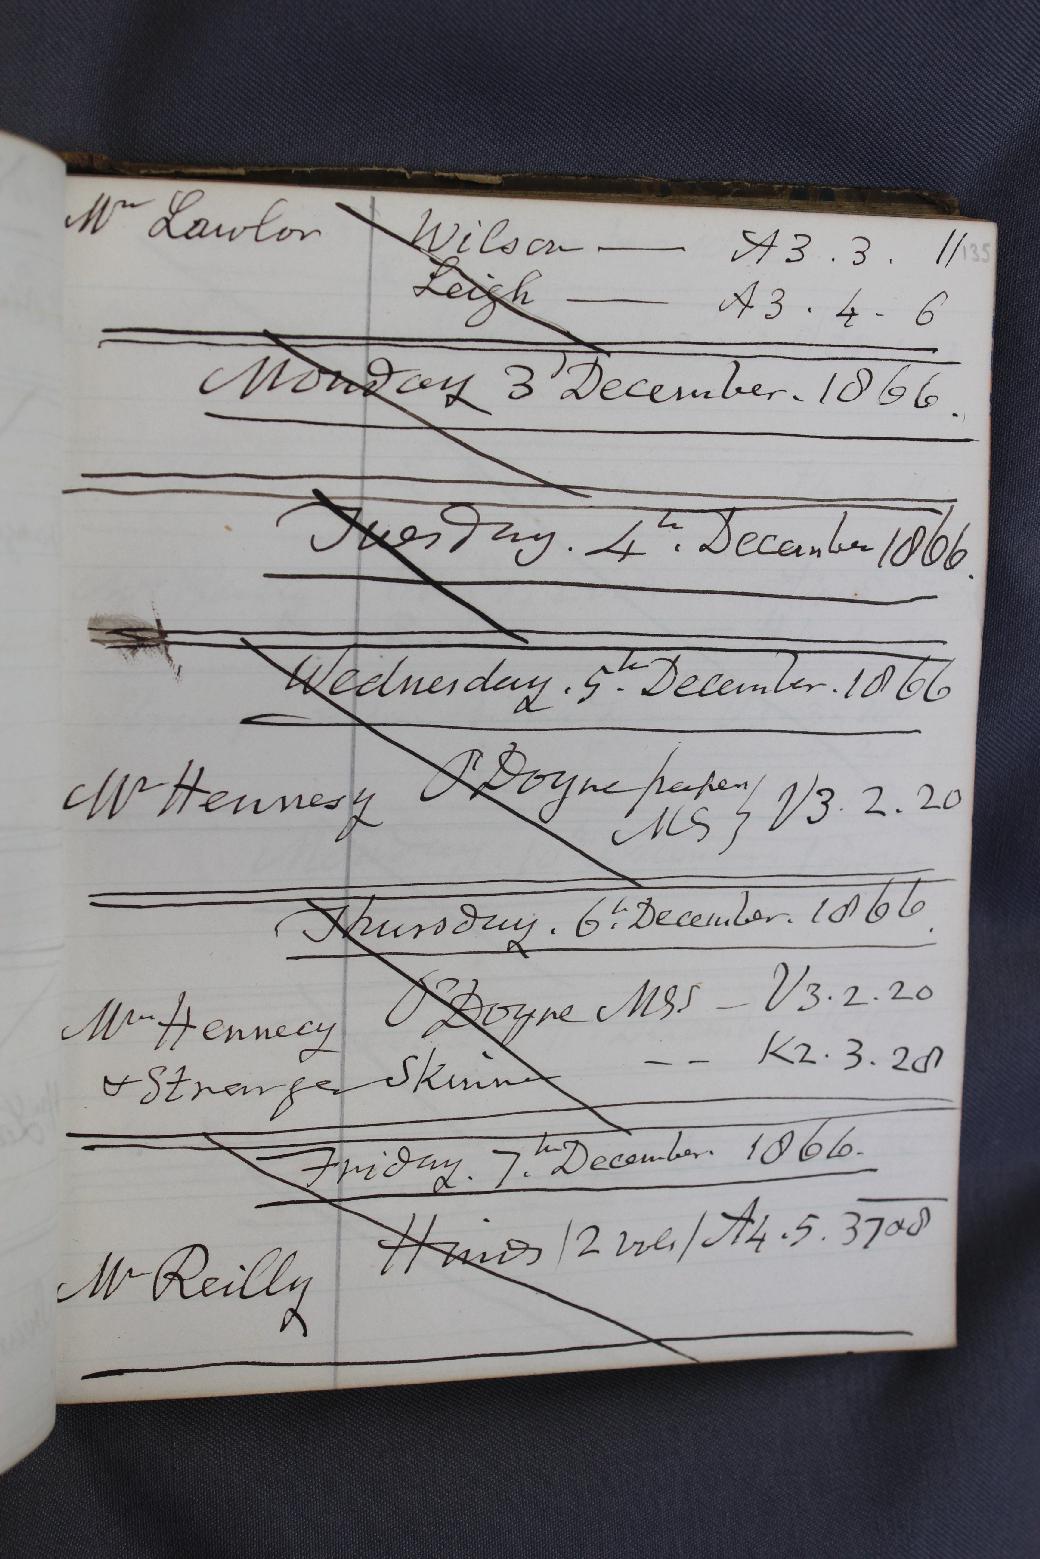 Mr Lawlor Wilson — A3.3. 11 135
Leigh — A3.4-6
Monday 3d December. 1866.
Tuesday. 4th. December 1866.
Wednesday. 5th December. 1866
Mr Hennesy O'Doyne papers V3.2.20
MS
Thursday. 6th December. 1866.
Mr Hennecy O'Doyne MSS — V3.2.20
& Stranger Skinner -- K2.3.28
Friday. 7th December. 1866.
Mr Reilly /2 vols/ A4.5.37